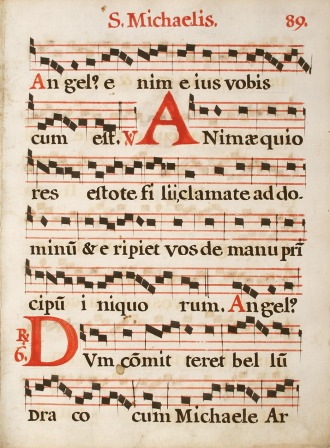 S. Michaelis. 89.
An gelꝰ e nim e ius vobis
cum est. ℣ ANimæquio
res estote fi lii,clamate ad do-
minũ & e ripiet vos de manu pri
cipũ i niquo rum. An gelꝰ
℟ 6. DVm cõmit teret bel lũ
DRA co cum Michaele Ar